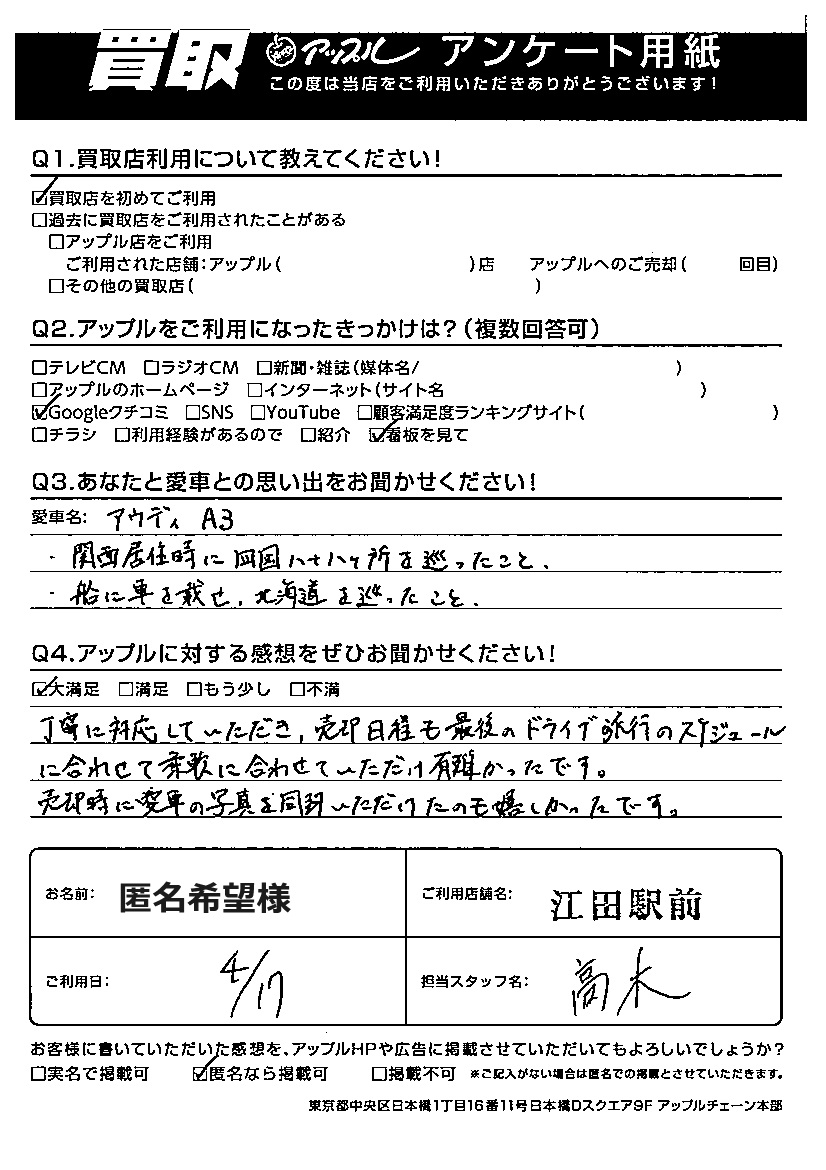 買取 アップル アンケート用紙
この度は当店をご利用いただきありがとうございます!
Q1.買取店利用について教えてください!
☑買取店を初めてご利用
□過去に買取店をご利用されたことがある
□アップル店をご利用
ご利用された店舗:アップル( )店 アップルへのご売却( 回目)
□その他の買取店( )
Q2.アップルをご利用になったきっかけは?(複数回答可)
□テレビCM □ラジオCM □新聞・雑誌(媒体名/ )
□アップルのホームページ □インターネット(サイト名 )
☑Googleクチコミ □SNS □YouTube □顧客満足度ランキングサイト( )
□チラシ □利用経験があるので □紹介 ☑看板を見て
Q3.あなたと愛車との思い出をお聞かせください!
愛車名: アウディ A3
・関西居住時に四国八十八ヶ所を巡ったこと、
・船に車を載せ、北海道を巡ったこと、
Q4.アップルに対する感想をぜひお聞かせください!
☑大満足 □満足 □もう少し □不満
丁寧に対応していただき、売却日程も最後のドライブ旅行のスケジュール
に合わせて柔軟に合わせていただけ有難かったです。
売却時に愛車の写真を同封いただけたのも嬉しかったです。
お名前: 匿名希望様 ご利用店舗名: 江田駅前
ご利用日: 4/17 担当スタッフ名: 高木
お客様に書いていただいた感想を、アップルHPや広告に掲載させていただいてもよろしいでしょうか?
□実名で掲載可 ☑匿名なら掲載可 □掲載不可 ※ご記入がない場合は匿名での掲載とさせていただきます。
東京都中央区日本橋1丁目16番11号日本橋Dスクエア9F アップルチェーン本部